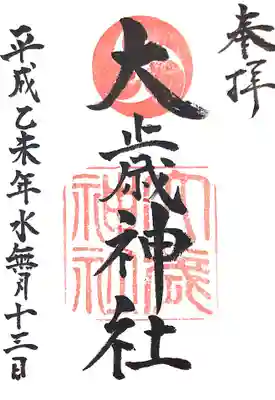 奉拝
大歳神社
大歳
神社
平成乙未年水無月十三日